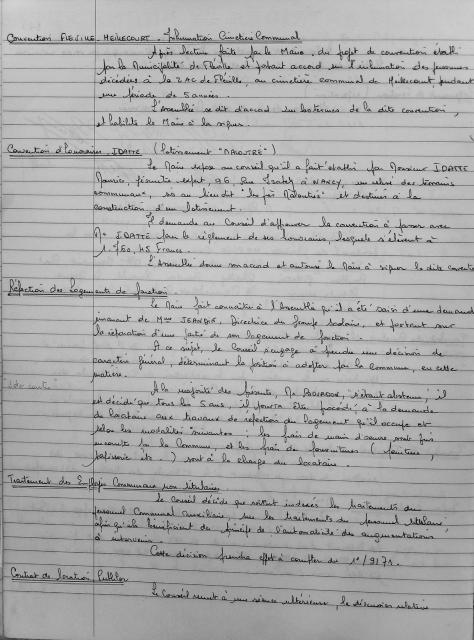 Convention FLEVILLE-HEILLECOURT - Inhumation Cimetière Communal
Après lecture faite par le Maire, du projet de convention établi
par la Municipalité de Fléville et portant accord sur l'inhumation des personnes
décédées à la ZAC de Fléville, au cimetière communal de Heillecourt, pendant
une période de 5 années.
L'Assemblée se dit d'accord sur les termes de la dite convention,
et habilite le Maire à la signer.
Convention d'honoraires IDATTE (lotissement "MALOUTRE")
Le Maire expose au conseil qu'il a fait établir par Monsieur IDATTE
Maurice, géomètre expert, 96, Rue à NANCY, un relevé des terrains
communaux, sis au lieu dit "le pré" et destinés à la
construction d'un lotissement.
Il demande au Conseil d'approuver la convention à passer avec
Mr IDATTE pour le règlement de ses honoraires, lesquels s'élèvent à
1.760,45 Francs.
L'Assemblée donne son accord et autorise le Maire à signer la dite convention
Réfection des Logements de fonction.
Le Maire fait connaître à l'Assemblée qu'il a été saisi d'une demande
émanant de Mme, Directrice du Groupe Scolaire, et portant sur
la réparation d'une partie de son logement de fonction.
A ce sujet, le Conseil s'engage à prendre une décision de
caractère général, déterminant la position à adopter par la Commune, en cette
matière.
A la majorité des présents, Mr s'étant abstenu, il
est décidé que tous les 5 ans, il pourra être procédé à la demande
du locataire aux travaux de réfection du logement qu'il occupe et
selon les modalités suivantes : les frais de main d'oeuvre sont pris
en compte par la Commune, et les frais de fournitures (peinture,
tapisserie etc.) sont à la charge du locataire.
Traitement des Employés Communaux non titulaires
Le Conseil décide que soient indexés les traitements du
personnel Communal Auxiliaire sur les traitements du personnel titulaire,
afin qu'ils bénéficient du principe de l'automaticité des augmentations
à intervenir.
Cette décision prendra effet à compter du 1°/9/71.
Contrat de location
Le Conseil remet à une séance ultérieure, la discussion relative